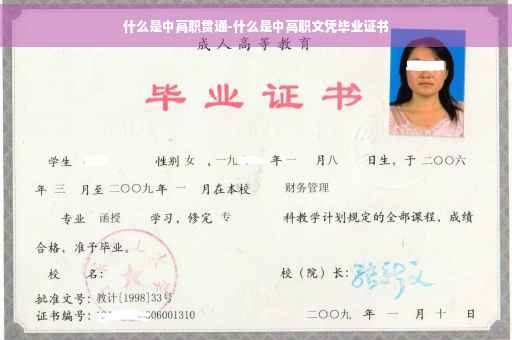 什么是中高职贯通-什么是中高职文凭毕业证书
成人高等教育
毕业证书
学生 性别 女 ,一九 年 一 月八 日生，于 二〇〇六
年 三 月至 二〇〇九 年 一 月在本校 财务管理
专业 函授 学习，修完 专 科教学计划规定的全部课程，成绩
合格，准予毕业。
校 名： 校（院）长：
批准文号：教计[1998]33号
证书编号： 06001310 二〇〇九 年 一 月 十 日